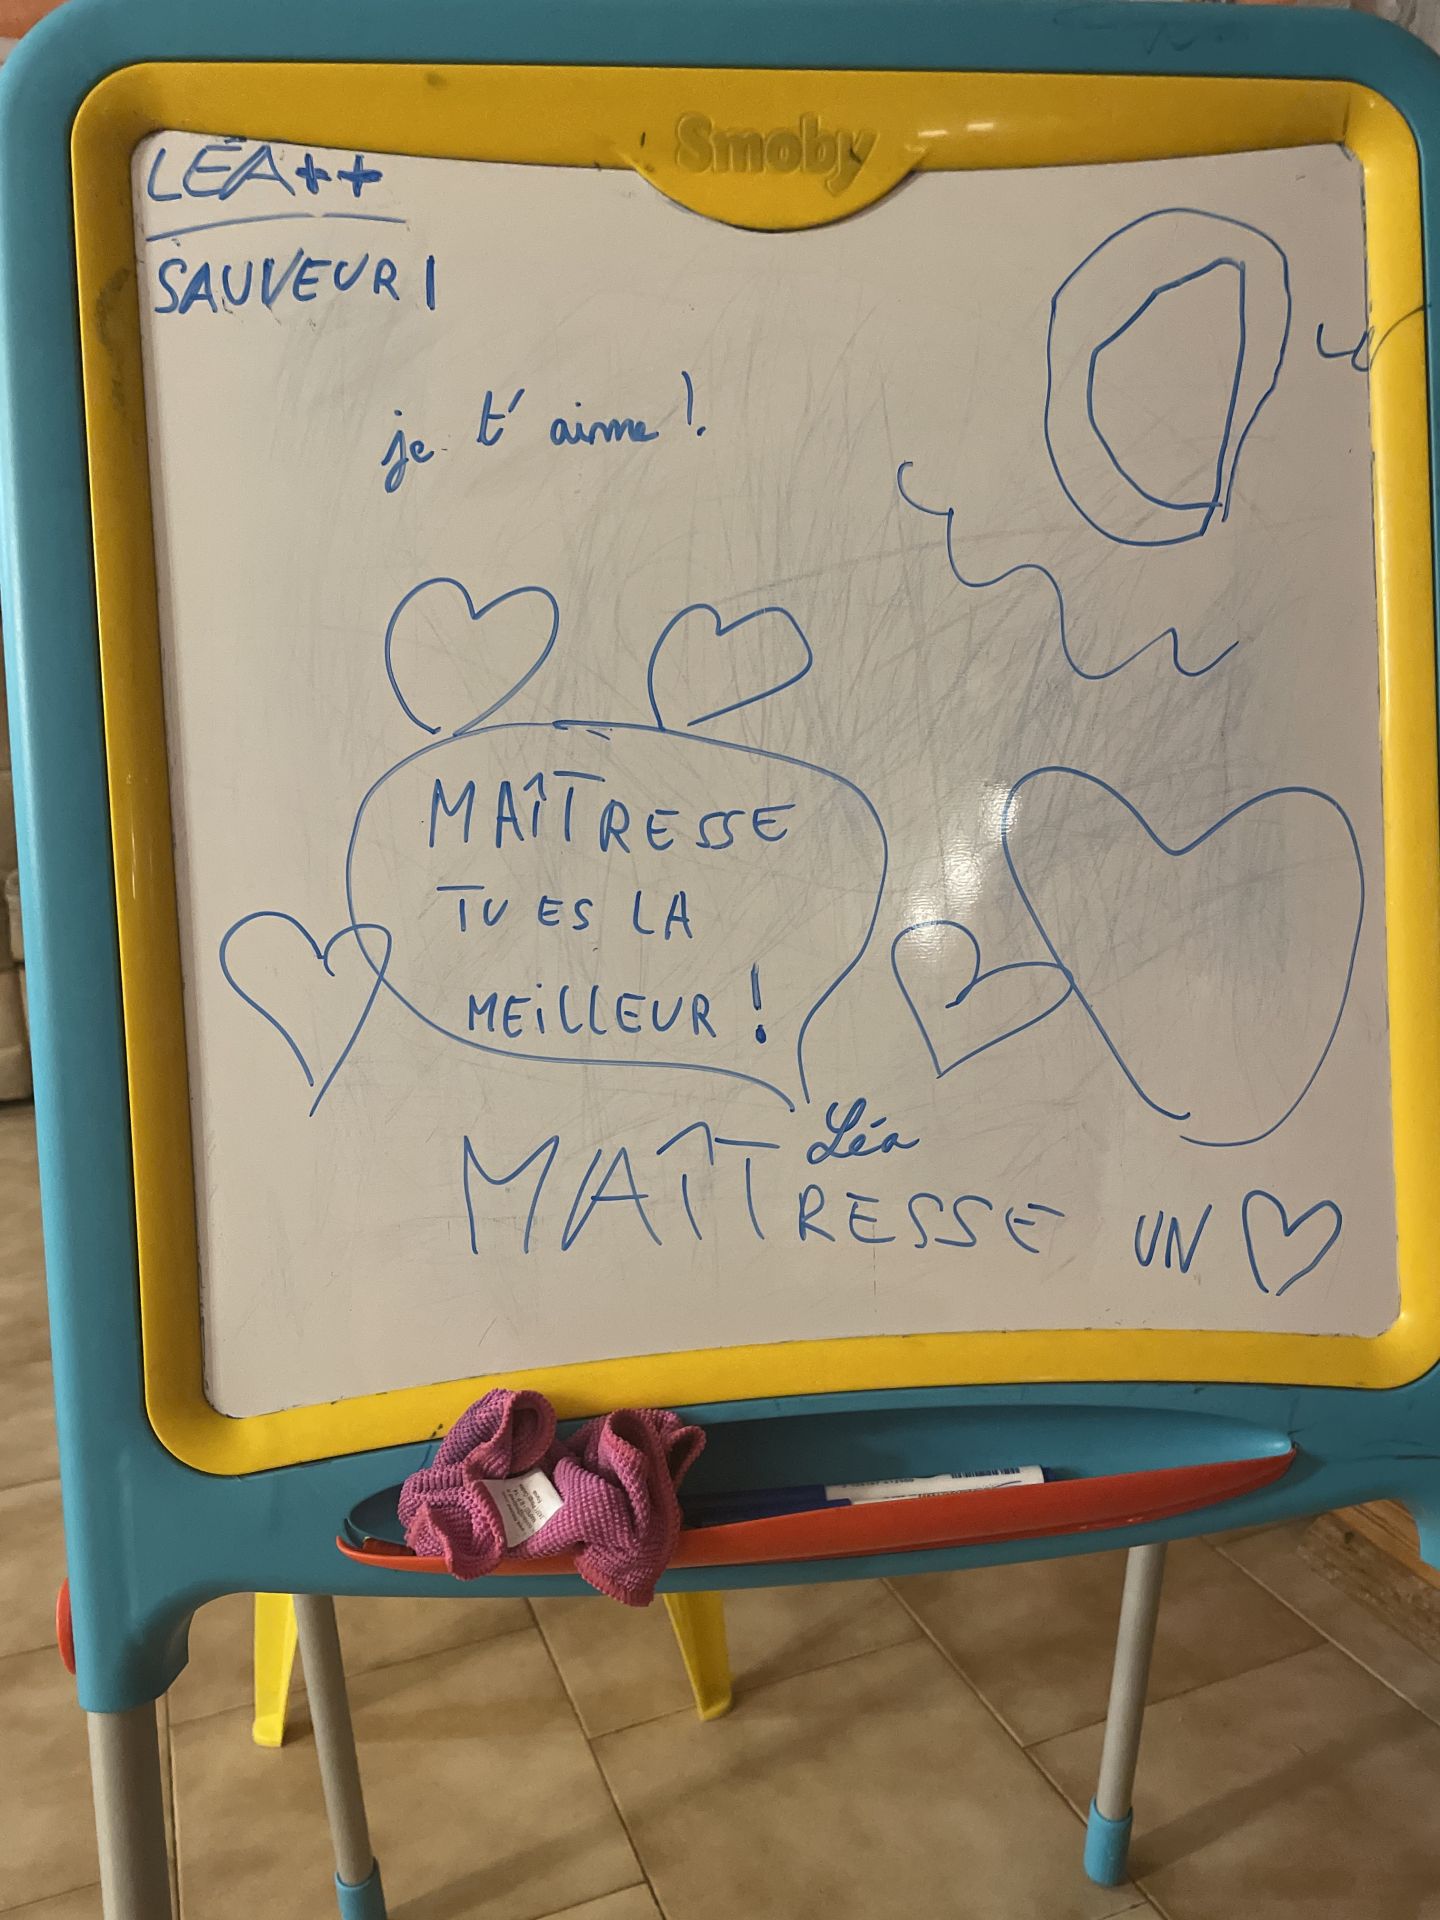 Smoby
LÉA++
SAUVEUR |
je t'aime !
MAÎTRESSE
TU ES LA
MEiLLEUR !
Léa
MAÎTRESSE UN